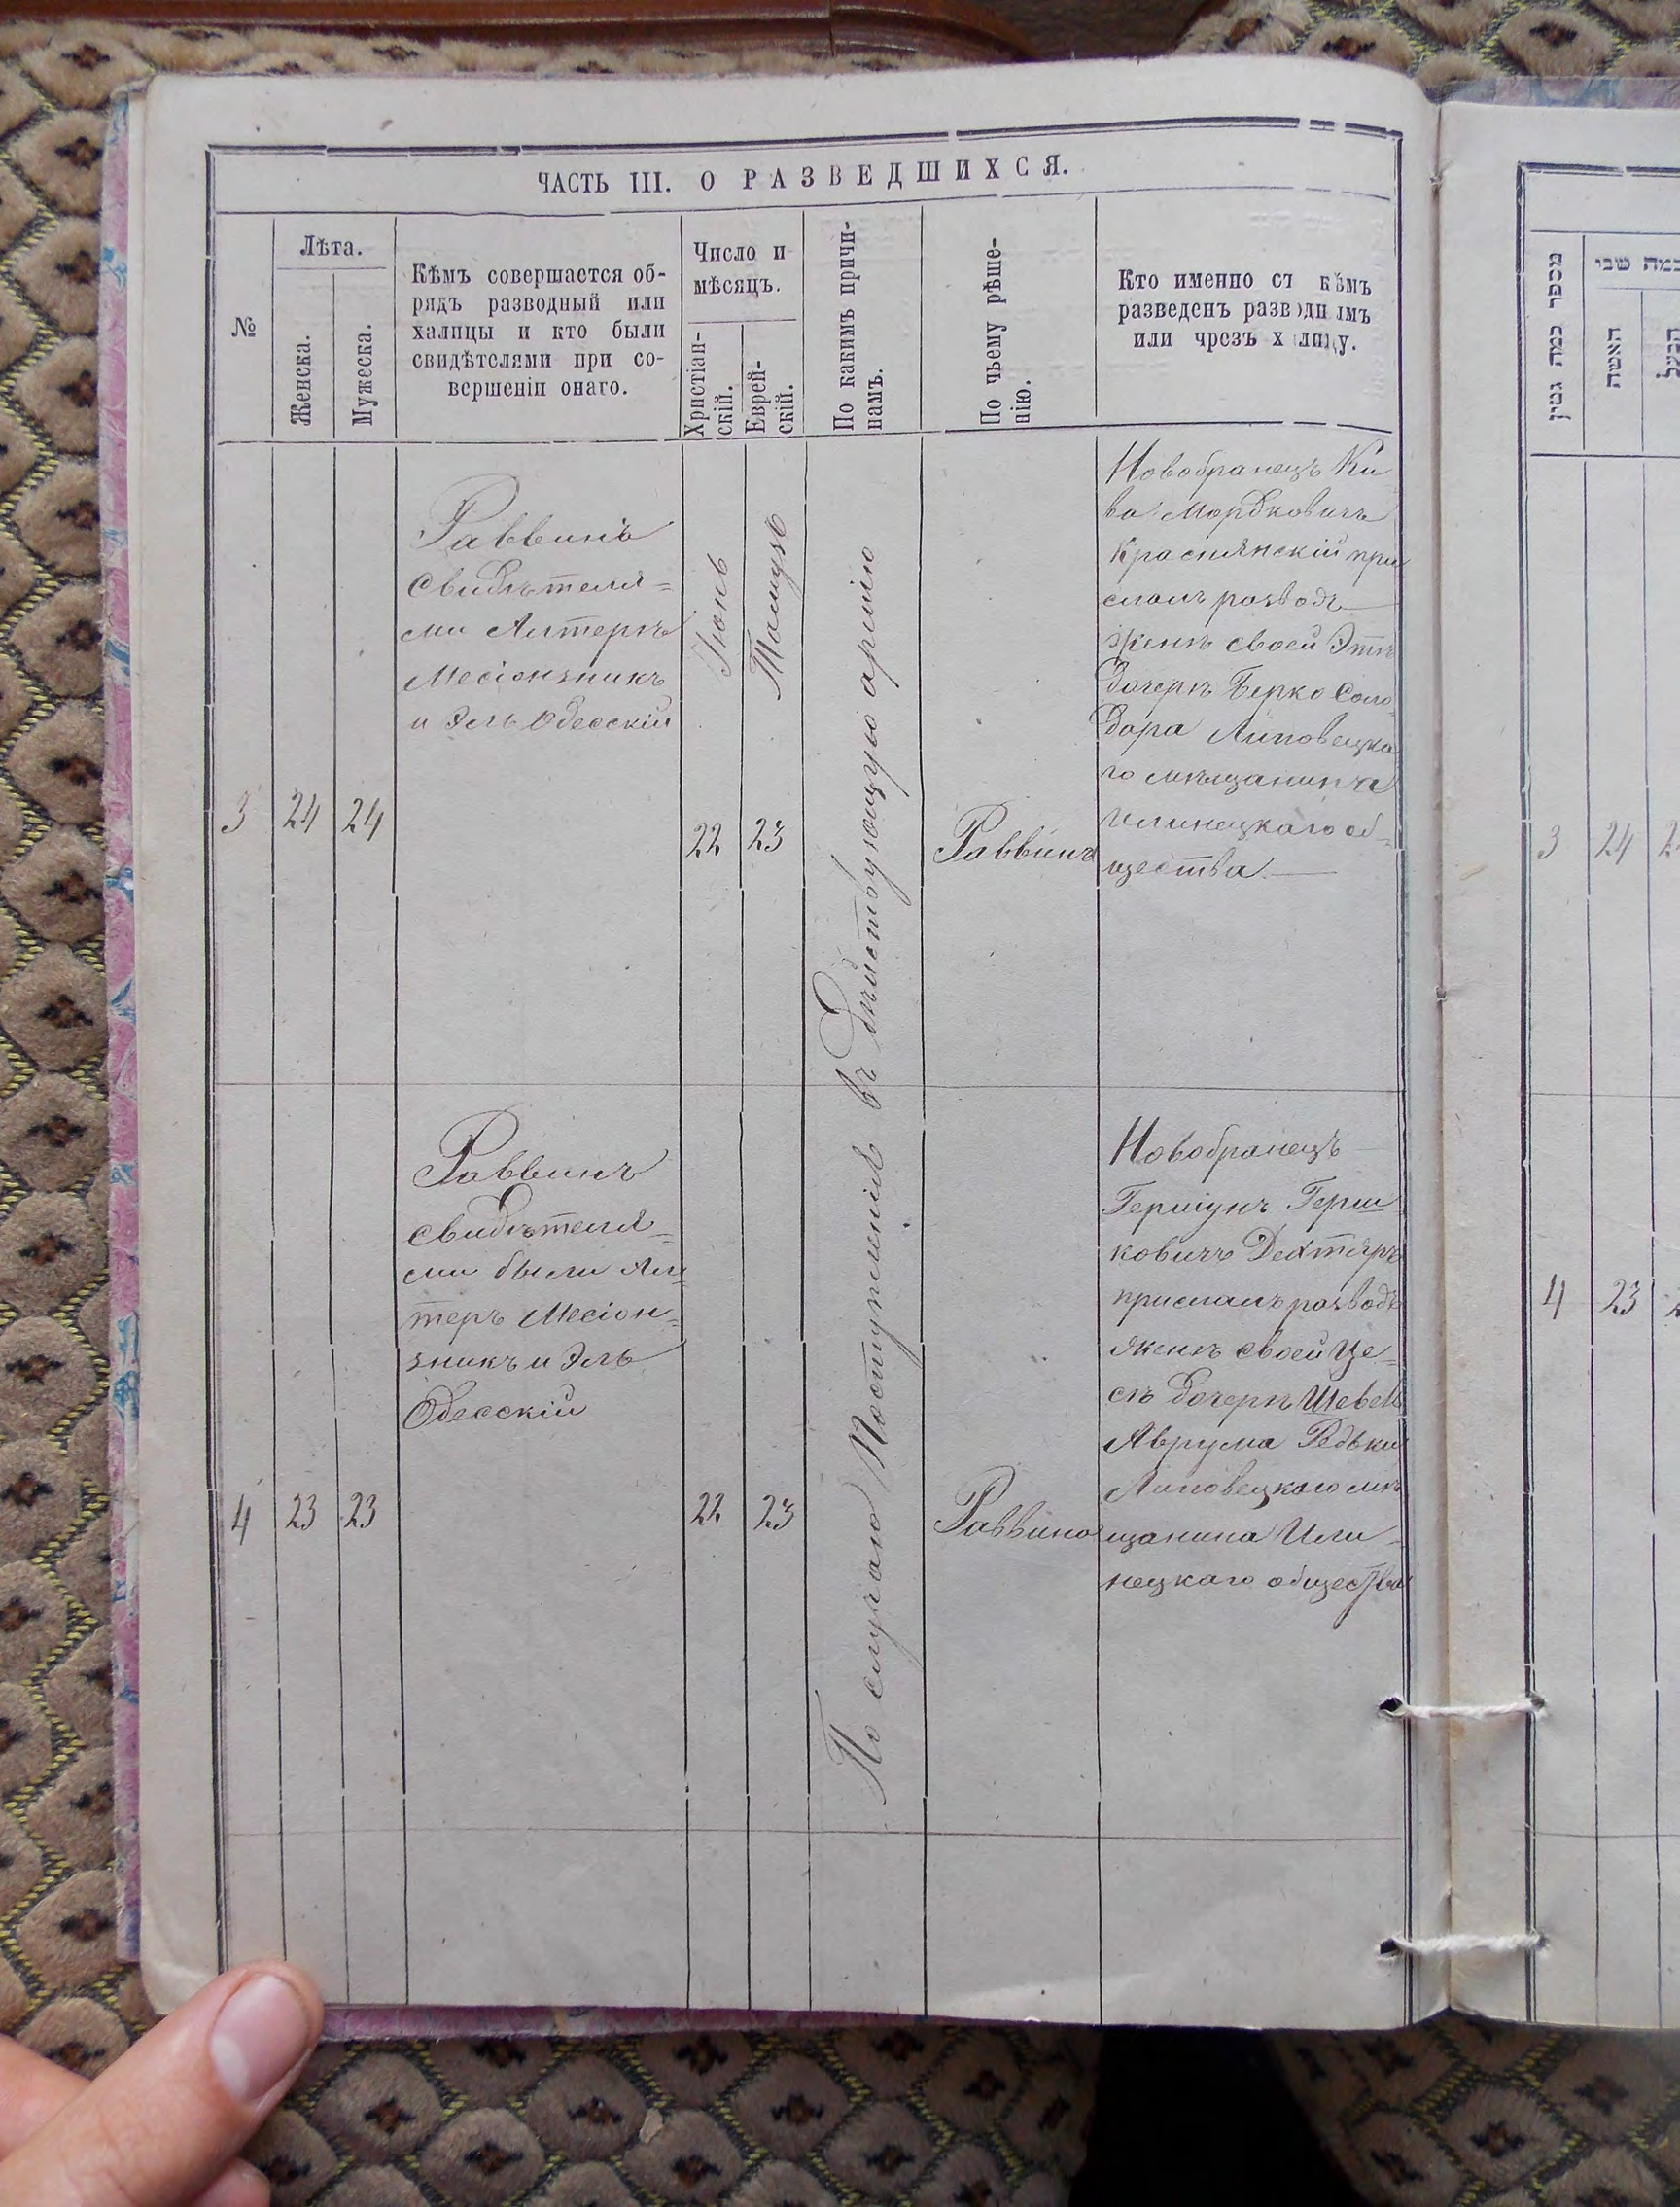 ЧАСТЬ III. О РАЗВЕДШИХСЯ.
№
Лѣта.
Женска.
Мужеска.
Кѣмъ совершается об-
рядъ разводный или
халицы и кто были
свидѣтелями при со-
вершеніи онаго.
Число и
мѣсяцъ.
Христіан-
скій.
Еврей-
скій.
По какимъ причи-
намъ.
По чьему рѣше-
нію.
Кто именно съ кѣмъ
разведенъ разводнымъ
или чрезъ халицу.
3
24
24
Раввинъ
свидѣтеля=
ми Алтеръ
Месіонзникъ
и Эль Одесскій
Іюнь
22
Тамузъ
23
По случаю поступленія въ дѣйствующую армію
Раввинъ
Новобранецъ Ки
ва Мордковичъ
Краснянскій при
слалъ розводъ
женѣ своей Этѣ
дочерѣ Берко Соло
дара Липовецка
го мѣщанина
Илинецкаго об-
щества.
4
23
23
Раввинъ
свидѣтеля=
ми были Ал
теръ Месіон=
зникъ и Эль
Одесскій
22
23
Раввинъ
Новобранецъ
Гершунъ Герш
ковичъ Дехтяръ
прислалъ розводъ
женѣ своей Це-
сѣ дочерѣ Шевель
Аврума Редьки
Липовецкаго мѣ
щанина Или-
нецкаго общества
מספר כמה גטין
כמה שני
האשה
הבעל
3
24
4
23